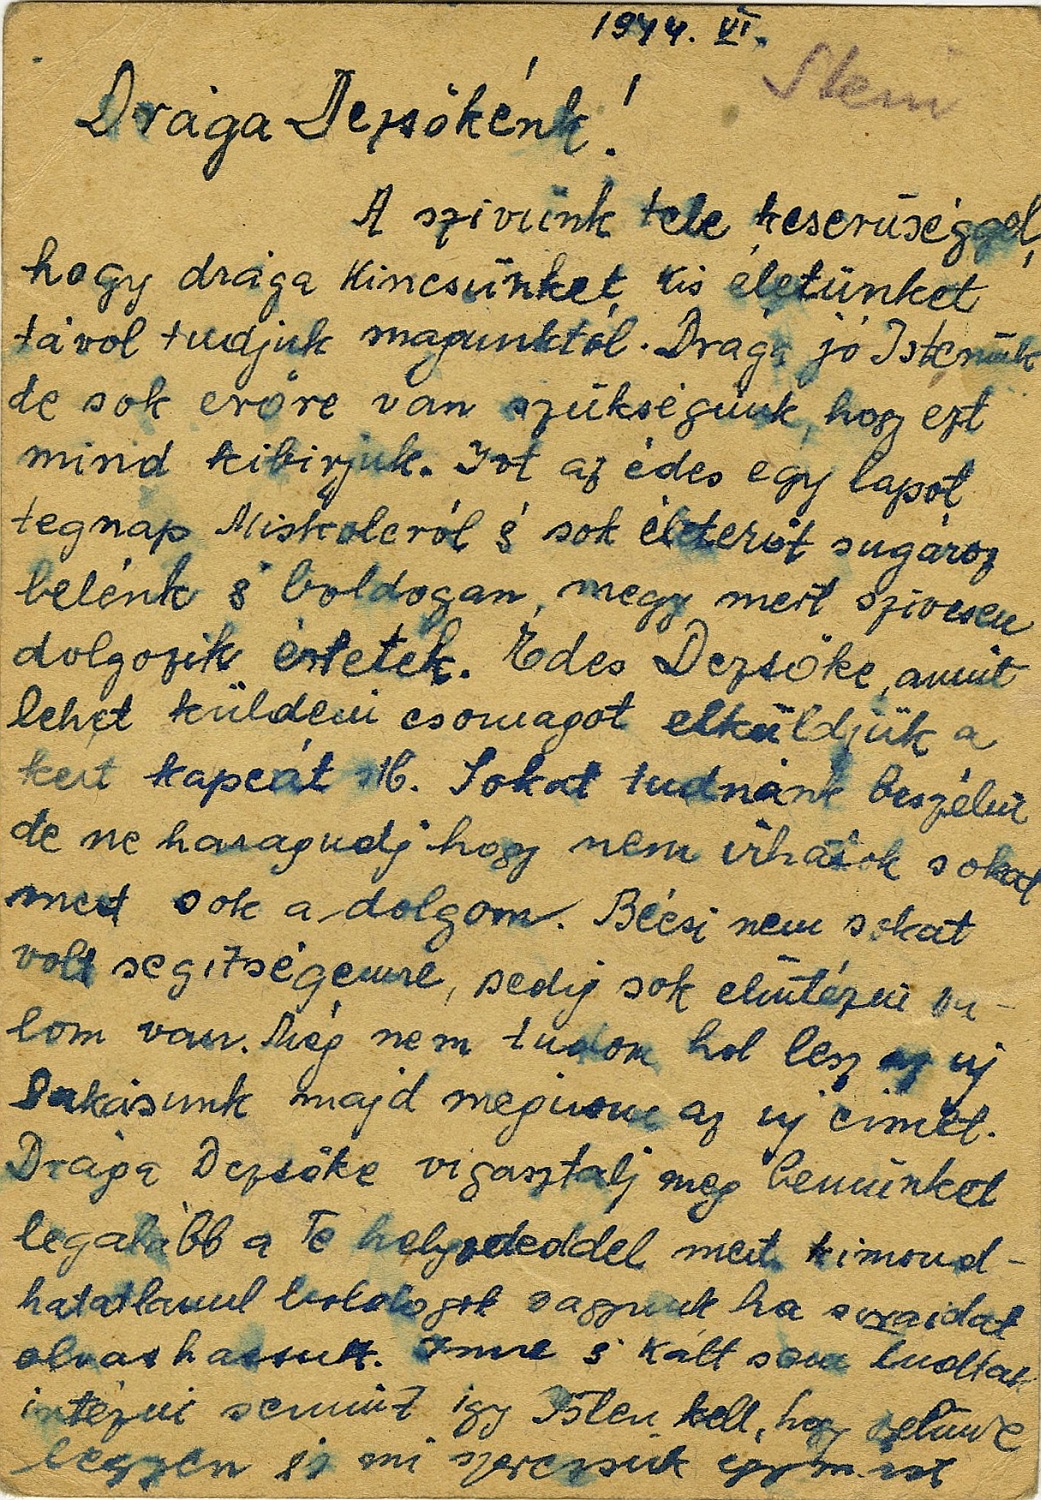 1944. VI.
Drága Dezsőkénk!
A szivünk tele keserüséggel,
hogy drága Kincsünket, kis életünket
távol tudjuk magunktól. Drága jó Istenük
de sok erőre van szükségünk, hogy ezt
mind kibirjuk. Irt az édes egy lapot
tegnap Miskolcról s sok életerőt sugároz
belénk s boldogan, megy mert szivesen
dolgozik értetek. Édes Dezsőke, amit
lehet küldeni csomagot elküldjük a
kért kapcát stb. Sokat tudnánk beszélni
de ne haragudj hogy nem irhatok sokat
mert sok a dolgom. Bécsi nem sokat
volt segitségemre, pedig sok elintézni va-
lom van. Még nem tudom hol lesz az uj
lakásunk majd megirom az uj cimet.
Drága Dezsőke vigasztalj meg bennünket
legalább a Te helyzeteddel mert kimond-
hatatlanul boldogok vagyunk ha soraidat
olvashassuk. Imre s Kált sem tudtak
intézni semmit igy Isten kell, hogy velünk
legyen és mi szeressük egymást